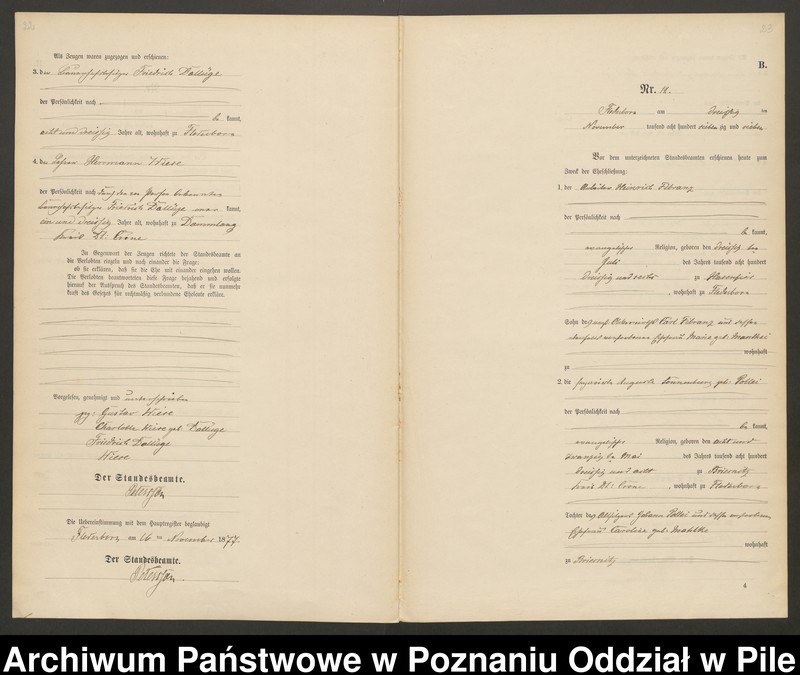 22
Als Zeugen waren zugezogen und erschienen:
3. der Bauerhofsbesitzer Friedrich Dallüge
der Persönlichkeit nach
be kannt,
acht und dreißig Jahre alt, wohnhaft zu Flederborn
4. der Herrmann Wiese
der Persönlichkeit nach durch den von Person bekannten
Bauerhofsbesitzer Friedrich Dallüge aner kannt,
und dreißig Jahre alt, wohnhaft zu
Kreis Dt: Crone
In Gegenwart der Zeugen richtete der Standesbeamte an
die Verlobten einzeln und nach einander die Frage:
ob sie erklären, daß sie die Ehe mit einander eingehen wollen.
Die Verlobten beantworteten diese Frage bejahend und erfolgte
hierauf der Ausspruch des Standesbeamten, daß er sie nunmehr
kraft des Gesetzes für rechtmäßig verbundene Eheleute erkläre.
Vorgelesen, genehmigt und unterschrieben
gez: Gustav Wiese
Charlotte Wiese geb. Dallüge
Friedrich Dallüge
Wiese
Der Standesbeamte.
Die Uebereinstimmung mit dem Hauptregister beglaubigt
Flederborn am 16 ten November 1877.
Der Standesbeamte.
23
B.
Nr. 12.
Flederborn am dreißig ten
November tausend acht hundert sieben zig und sieben
Vor dem unterzeichneten Standesbeamten erschienen heute zum
Zweck der Eheschließung:
1. der Arbeiter Heinrich Fibranz
der Persönlichkeit nach
be kannt,
evangelischer Religion, geboren den dreißig ten
Juli des Jahres tausend acht hundert
dreißig und sechs zu Hasenfier
, wohnhaft zu Flederborn
Sohn des Carl Fibranz und dessen
verstorbenen Ehefrau Marie geb. Manthei
wohnhaft
zu
2. die Auguste Sonnenburg, geb: Pollei
der Persönlichkeit nach
be kannt,
evangelischer Religion, geboren den acht und
zwanzig ten Mai des Jahres tausend acht hundert
dreißig und acht zu Briesnitz
Kreis Dt: Crone, wohnhaft zu Flederborn
Tochter des Johann Pollei und dessen verstorbenen
Ehefrau Caroline geb: Mahlke
wohnhaft
zu Briesnitz
4
Archiwum Państwowe w Poznaniu Oddział w Pile